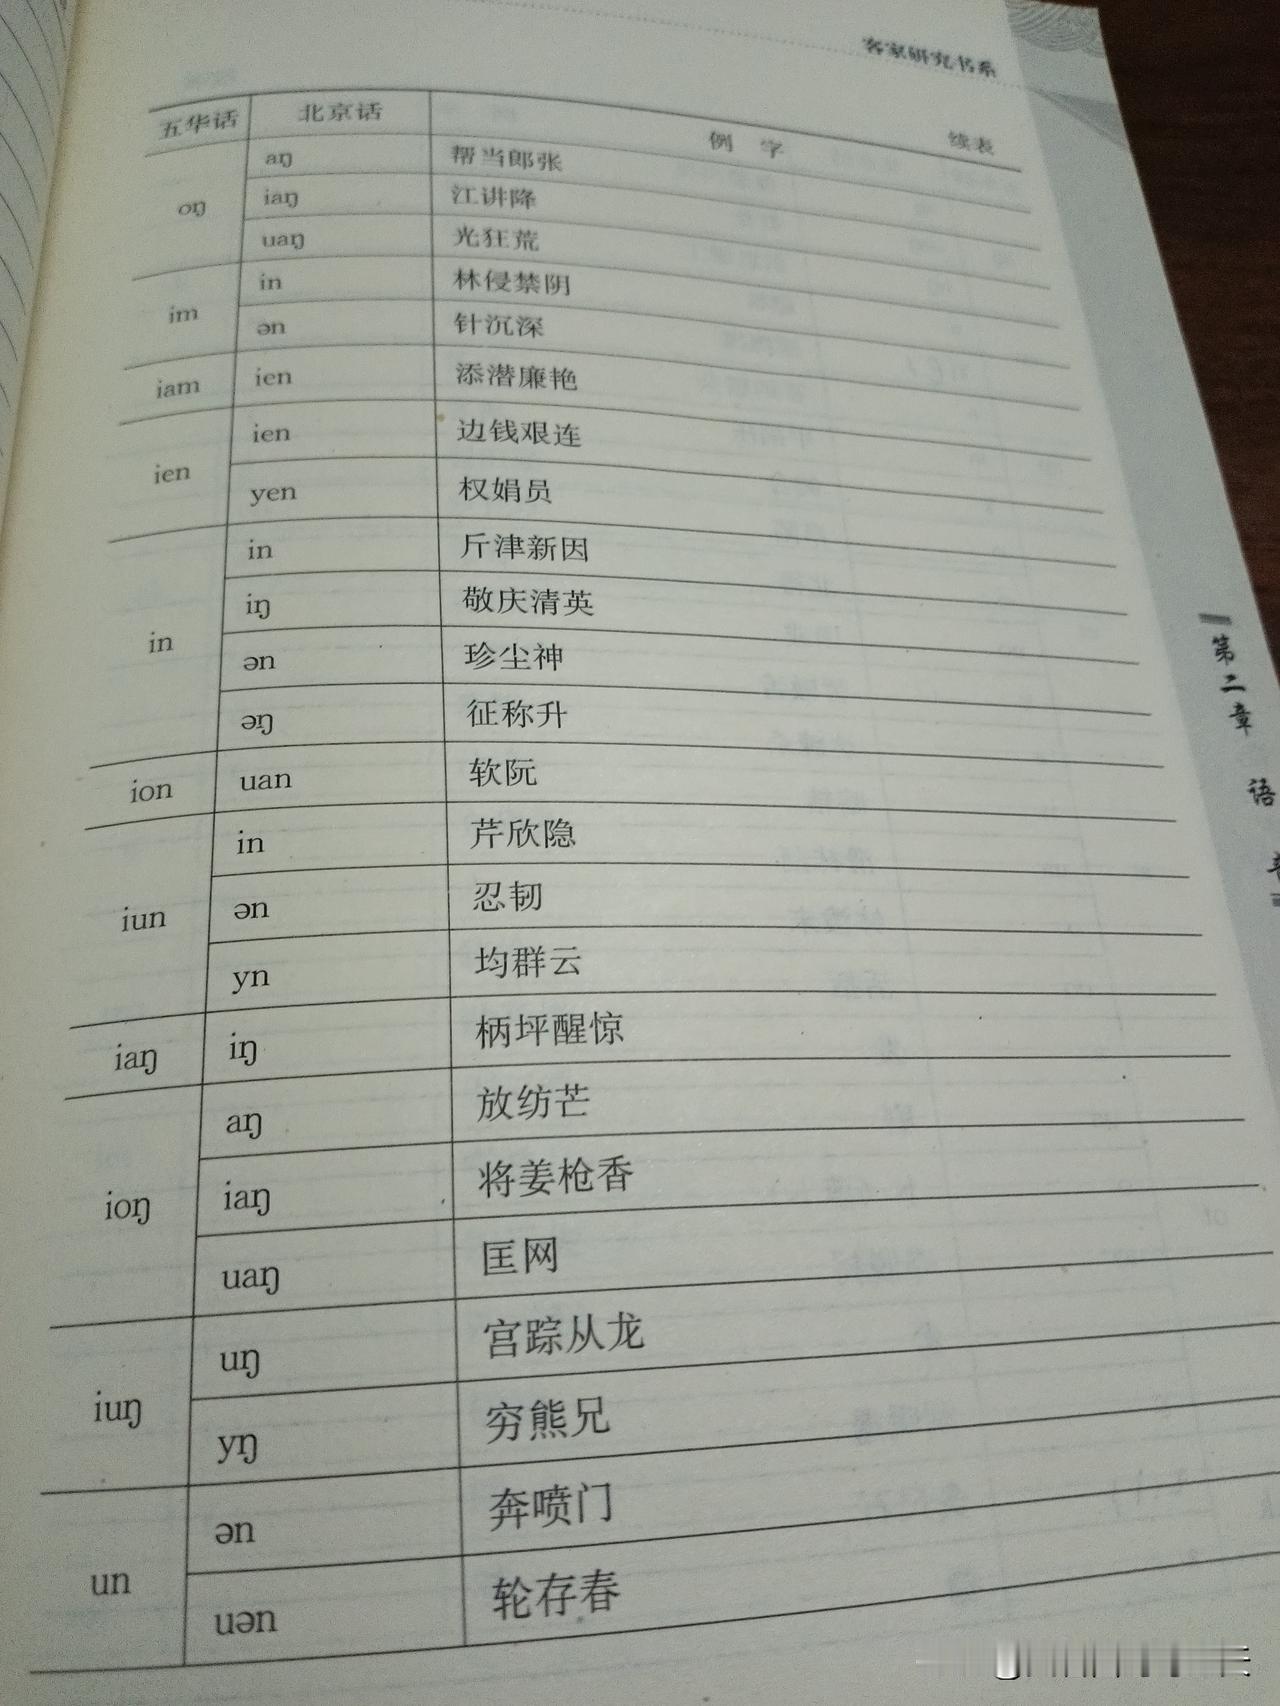 客家研究书系
续表
五华话 北京话 例 字
oŋ aŋ 帮当郎张
iaŋ 江讲降
uaŋ 光狂荒
im in 林侵禁阴
ən 针沉深
iam ien 添潜廉艳
ien ien 边钱艰连
yen 权娟员
in in 斤津新因
iŋ 敬庆清英
ən 珍尘神
əŋ 征称升
ion uan 软阮
iun in 芹欣隐
ən 忍韧
yn 均群云
iaŋ iŋ 柄坪醒惊
ioŋ aŋ 放纺芒
iaŋ 将姜枪香
uaŋ 匡网
iuŋ uŋ 宫踪从龙
yŋ 穷熊兄
un ən 奔喷门
uən 轮存春
第二章 语